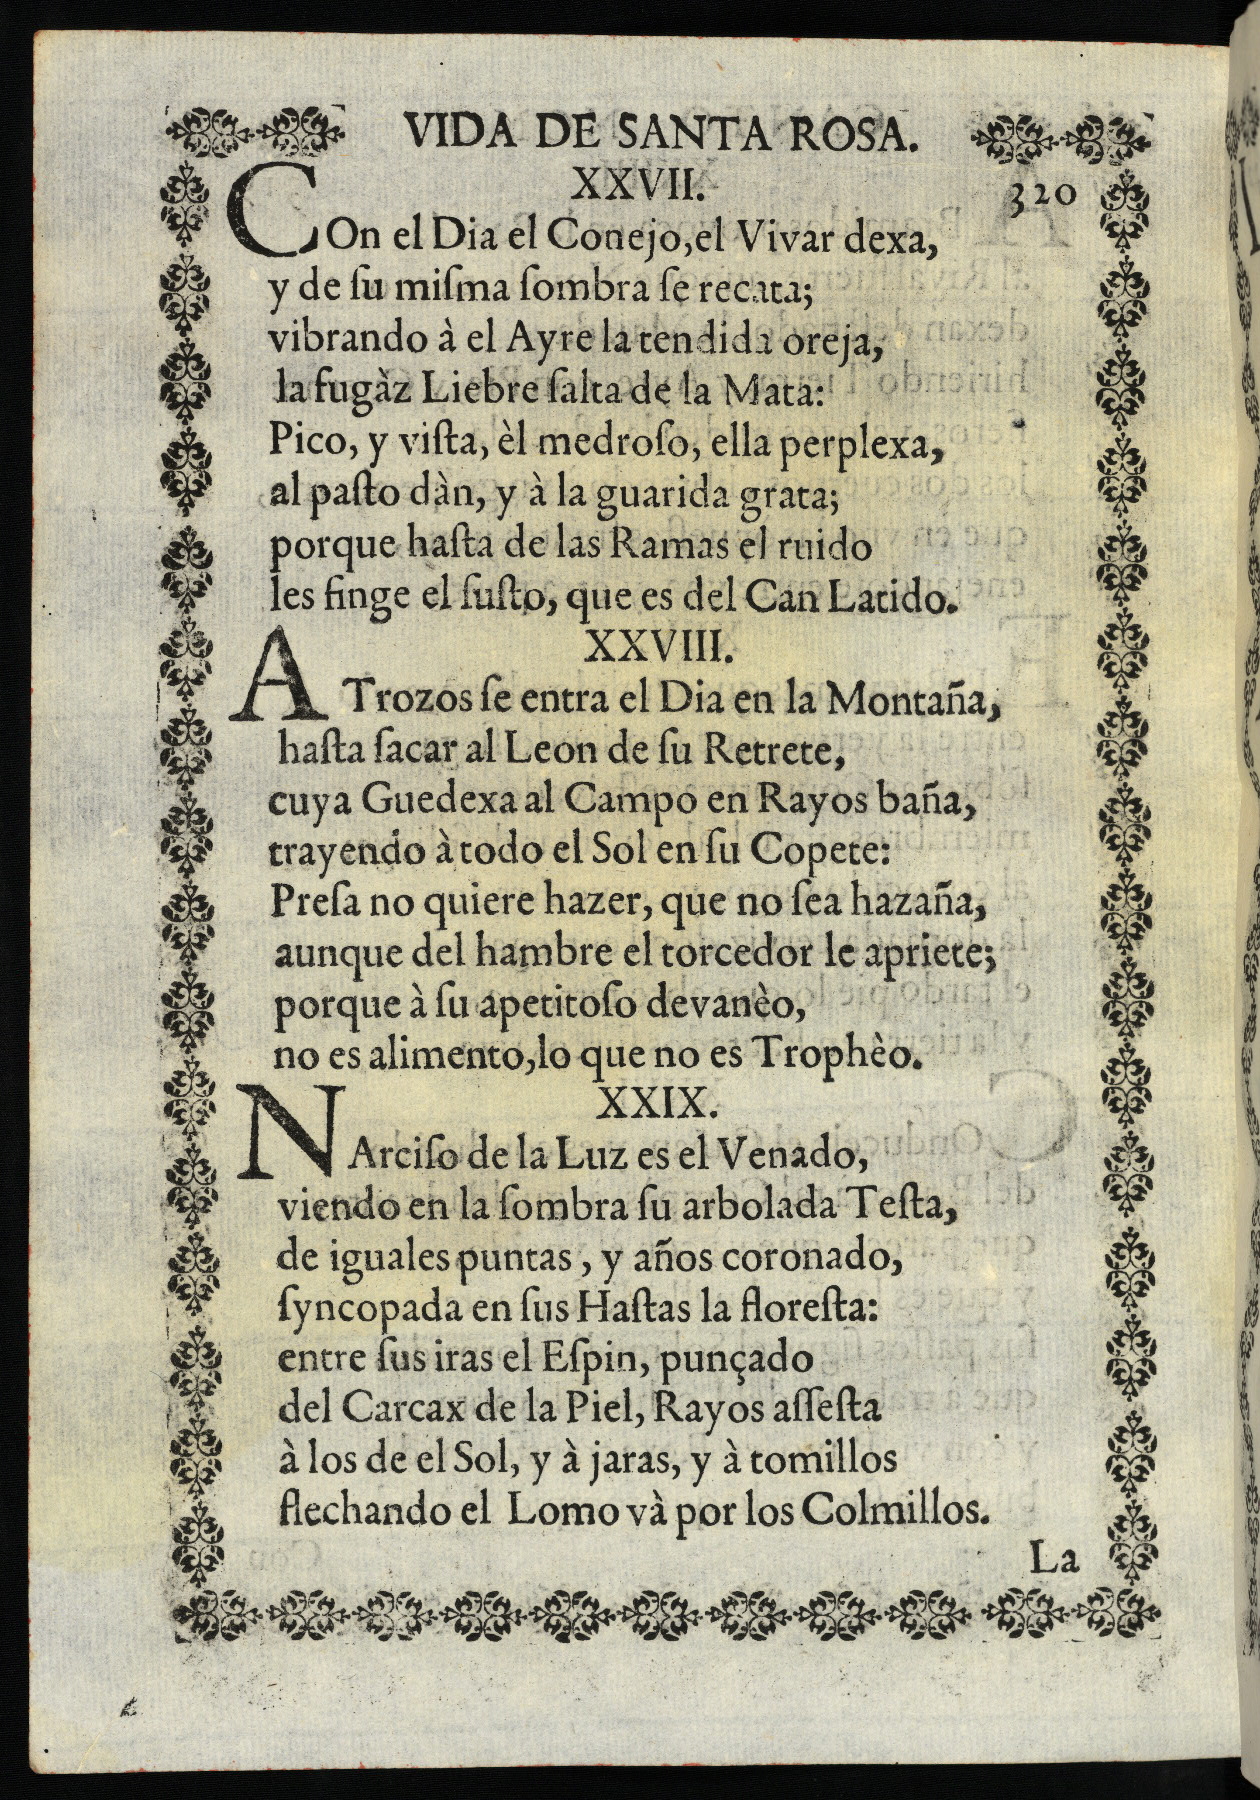 VIDA DE SANTA ROSA.
XXVII.
320
COn el Dia el Conejo,el Vivar dexa,
y de ſu miſma ſombra ſe recata;
vibrando à el Ayre la tendida oreja,
la fugàz Liebre ſalta de la Mata:
Pico, y viſta, èl medroſo, ella perplexa,
al paſto dàn, y à la guarida grata;
porque haſta de las Ramas el ruido
les finge el ſuſto, que es del Can Latido.
XXVIII.
A Trozos ſe entra el Dia en la Montaña,
haſta ſacar al Leon de ſu Retrete,
cuya Guedexa al Campo en Rayos baña,
trayendo à todo el Sol en ſu Copete:
Preſa no quiere hazer, que no ſea hazaña,
aunque del hambre el torcedor le apriete;
porque à ſu apetitoſo devanèo,
no es alimento,lo que no es Trophèo.
XXIX.
NArciſo de la Luz es el Venado,
viendo en la ſombra ſu arbolada Teſta,
de iguales puntas, y años coronado,
ſyncopada en ſus Haſtas la floreſta:
entre ſus iras el Eſpin, punçado
del Carcax de la Piel, Rayos aſſeſta
à los de el Sol, y à jaras, y à tomillos
flechando el Lomo và por los Colmillos.
La